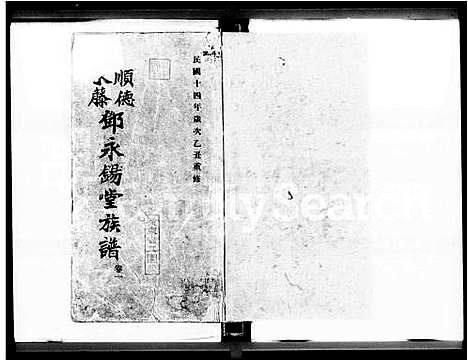 民國十四年歲次乙丑重修
順德
大藤
鄧永錫堂族譜
卷一
FamilySearch